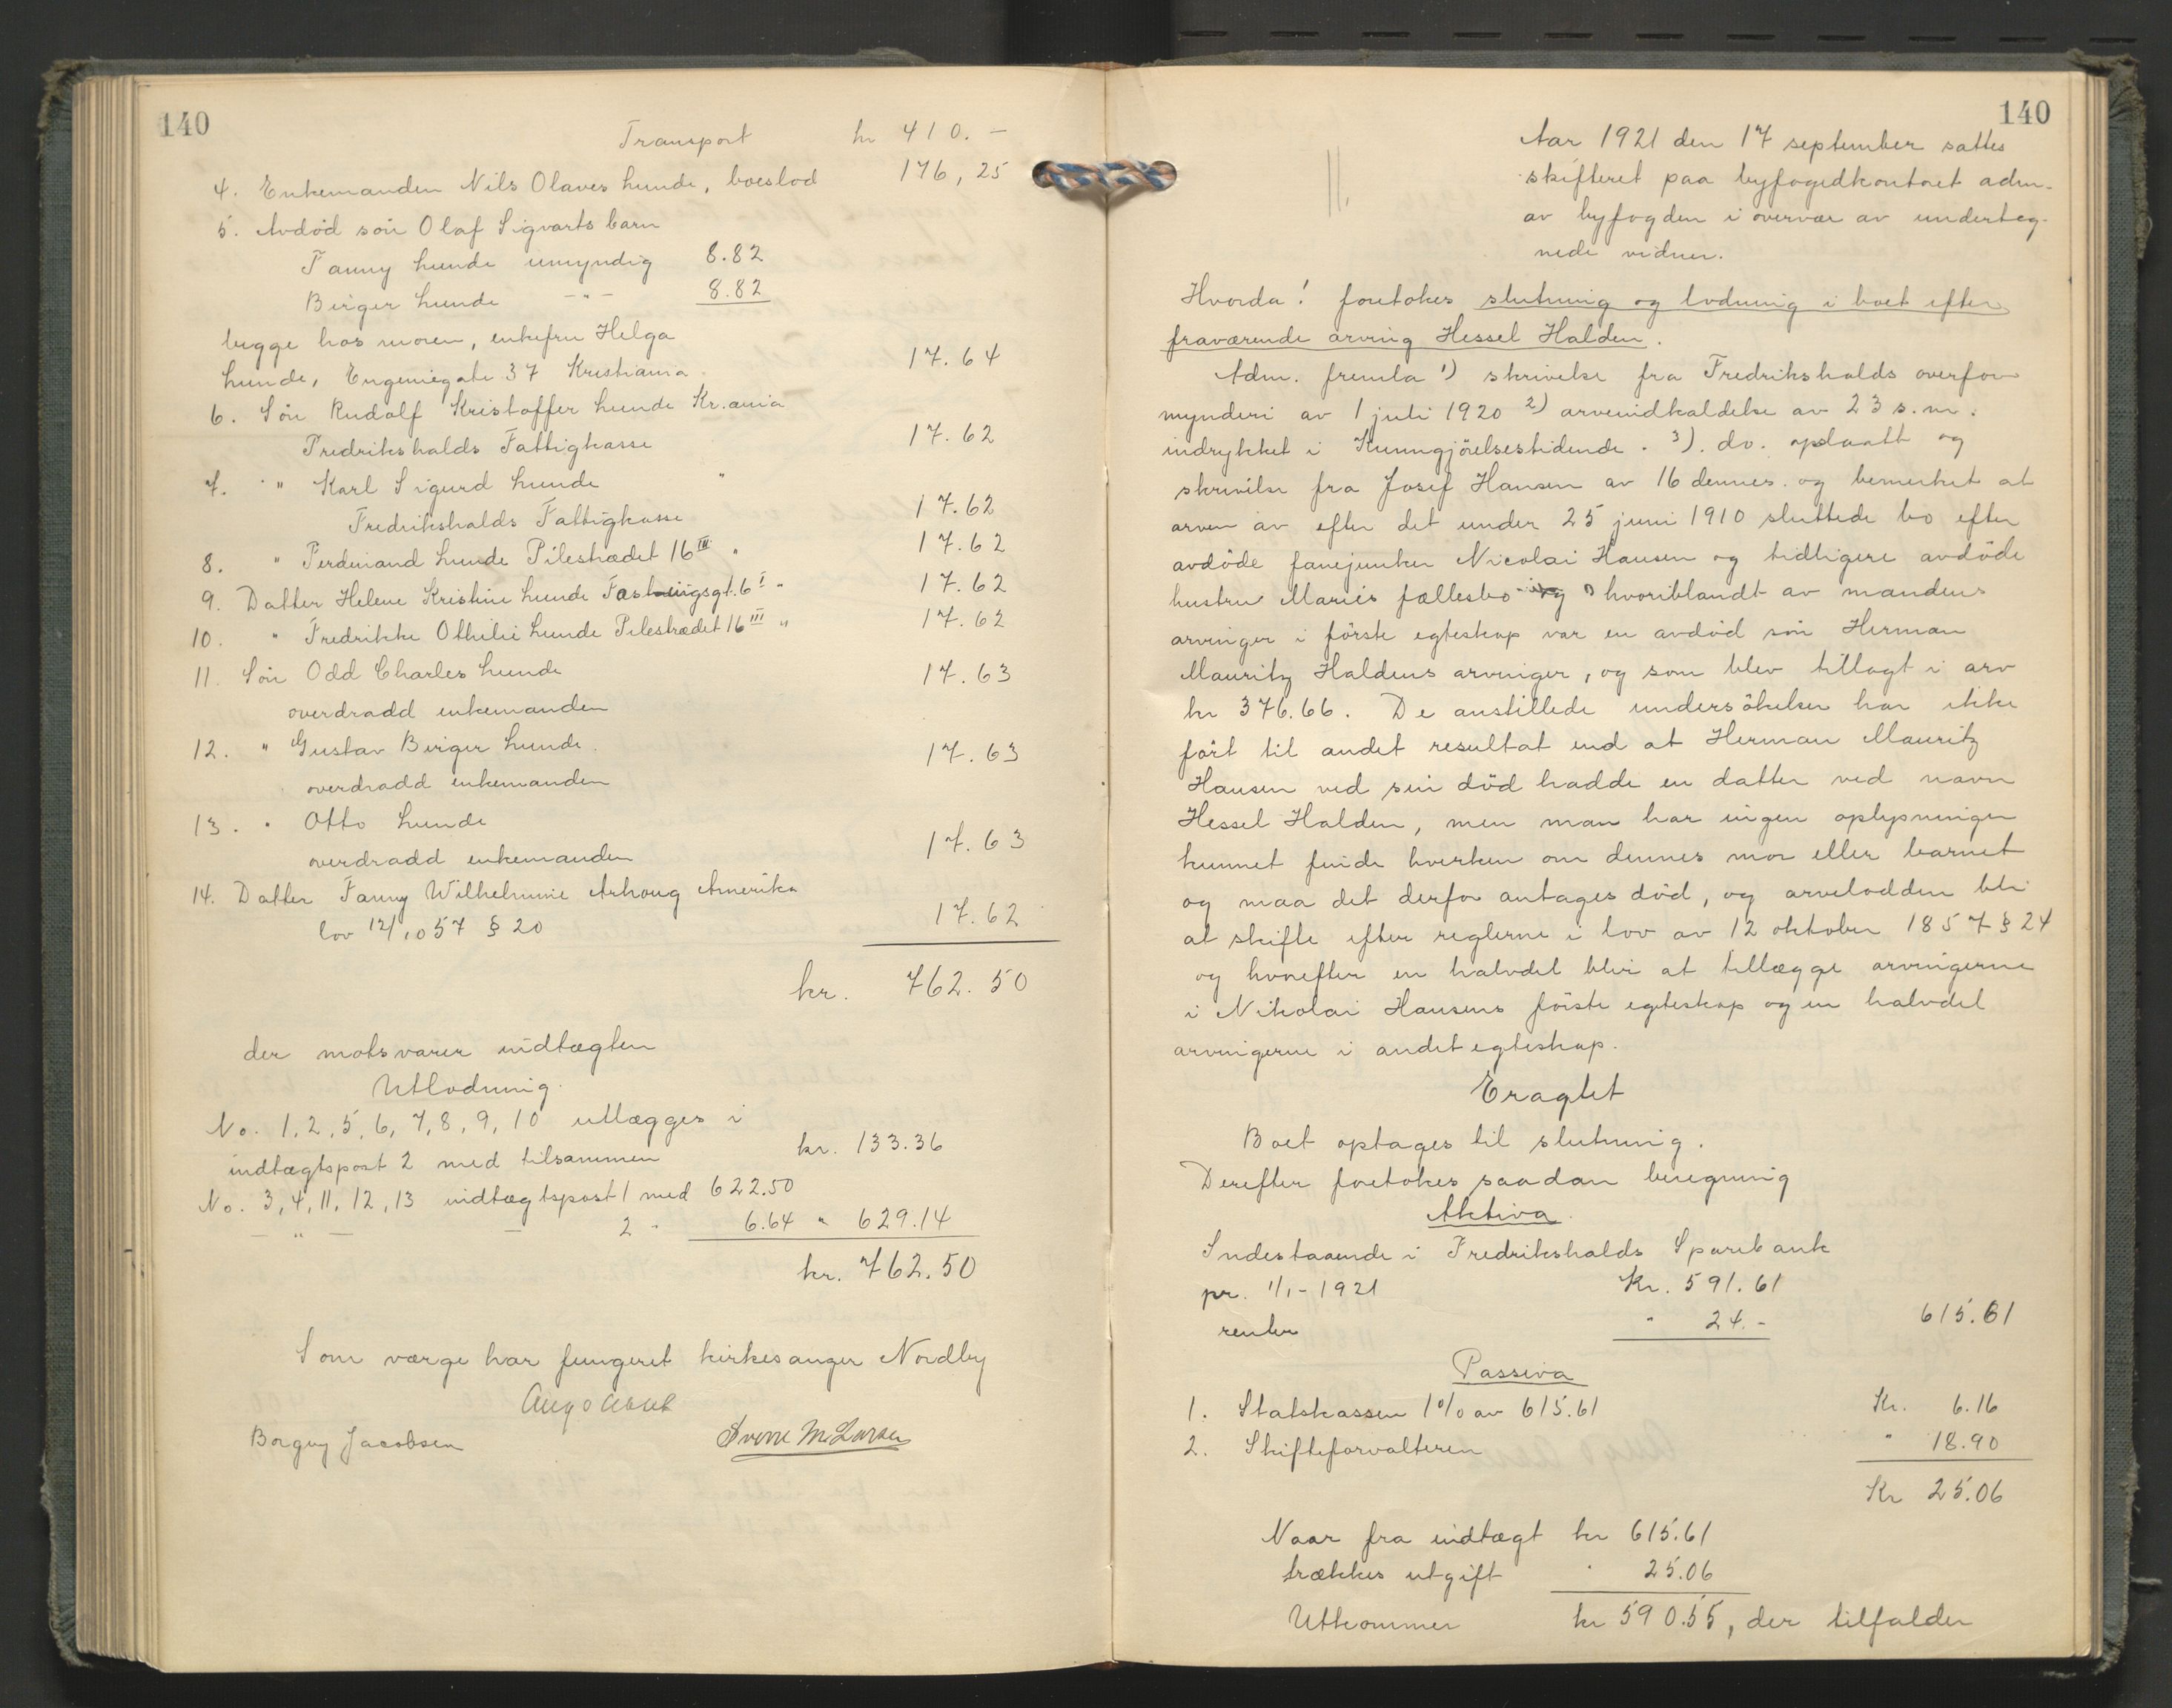 140
Transport kr 410.-
4. Enkemanden Nils Olaves Lunde, boeslod 176,25
5. Avdød søn Olaf Sigvarts barn
Fanny Lunde umyndig 8.82
Birger Lunde -"- 8.82
begge hos moren, enkefru Helga
Lunde, Eugeniegate 37 Kristiania 17.64
6. Søn Rudolf Kristoffer Lunde Kr.ania
Fredrikshalds Fattigkasse 17.62
7. " Karl Sigurd Lunde "
Fredrikshalds Fattigkasse 17.62
8. " Ferdinand Lunde Pilestrædet 16 III " 17.62
9. Datter Helene Kristine Lunde Fastningsgt. 6 I " 17.62
10. " Fredrikke Othilie Lunde Pilestrædet 16 III " 17.62
11. Søn Odd Charles Lunde 17.63
overdradd enkemanden
12. " Gustav Birger Lunde. 17.63
overdradd enkemanden
13. " Otto Lunde
overdradd enkemanden 17.63
14. Datter Fanny Wilhelmine Arhoug Amerika
lov 12/10 57 § 20 17.62
kr. 762.50
der motsvarer indtægten
Utlodning.
No. 1, 2, 5, 6, 7, 8, 9, 10 utlægges i
indtægtspost 2 med tilsammen kr. 133.36
No. 3, 4, 11, 12, 13 indtægtspost 1 med 622.50
- " - - 2 " 6.64 " 629.14
kr. 762.50
Som værge har fungeret kirkesanger Nordby
Borgny Jacobsen Sverre M. Larsen
140
Aar 1921 den 17 september sattes
skifteret paa byfogedkontoret adm.
av byfogden i overvær av underteg-
nede vidner.
Hvorda! foretokes slutning og lodning i boet efter
fraværende arving Hessel Halden.
Adm. fremla 1) skrivelse fra Fredrikshalds overfor
mynderi av 1 juli 1920 2) arveindkaldelse av 23 s.m.
indrykket i Kunngjörelsestidende. 3). do. oplaatt og
skrivelse fra Josef Hansen av 16 dennes. og bemerket at
arven av efter det under 25 juni 1910 sluttede bo efter
avdöde fanejunker Nicolai Hansen og tidligere avdöde
hustru Maries fællesbo hvoriblandt av mandens
arvinger i förste egteskap var en avdöd sön Herman
Mauritz Haldens arvinger, og som blev tillagt i arv
kr 376.66. De anstillede undersökelser har ikke
fört til andet resultat end at Herman Mauritz
Hansen ved sin död hadde en datter ved navn
Hessel Halden, men man har ingen oplysninger
kunnet finde hverken om dennes mor eller barnet
og maa det derfor antages död, og arvelodden bli
at skifte efter reglerne i lov av 12 oktober 1857 § 24
og hvorefter en halvdel blir at tillægge arvingerne
i Nikolai Hansens förste egteskap og en halvdel
arvingerne i andet egteskap.
Eragtet
Boet optages til slutning.
Derefter foretokes saadan beregning
Aktiva.
Indestaaende i Fredrikshalds Sparebank
pr. 1/1-1921 Kr. 591.61
renter " 24.- 615.61
Passiva
1. Statskassen 1% av 615.61 Kr. 6.16
2. Skifteforvalteren " 18.90
Kr 25.06
Naar fra indtægt kr 615.61
trækkes utgift " 25.06
Utkommer kr 590.55, der tilfalder